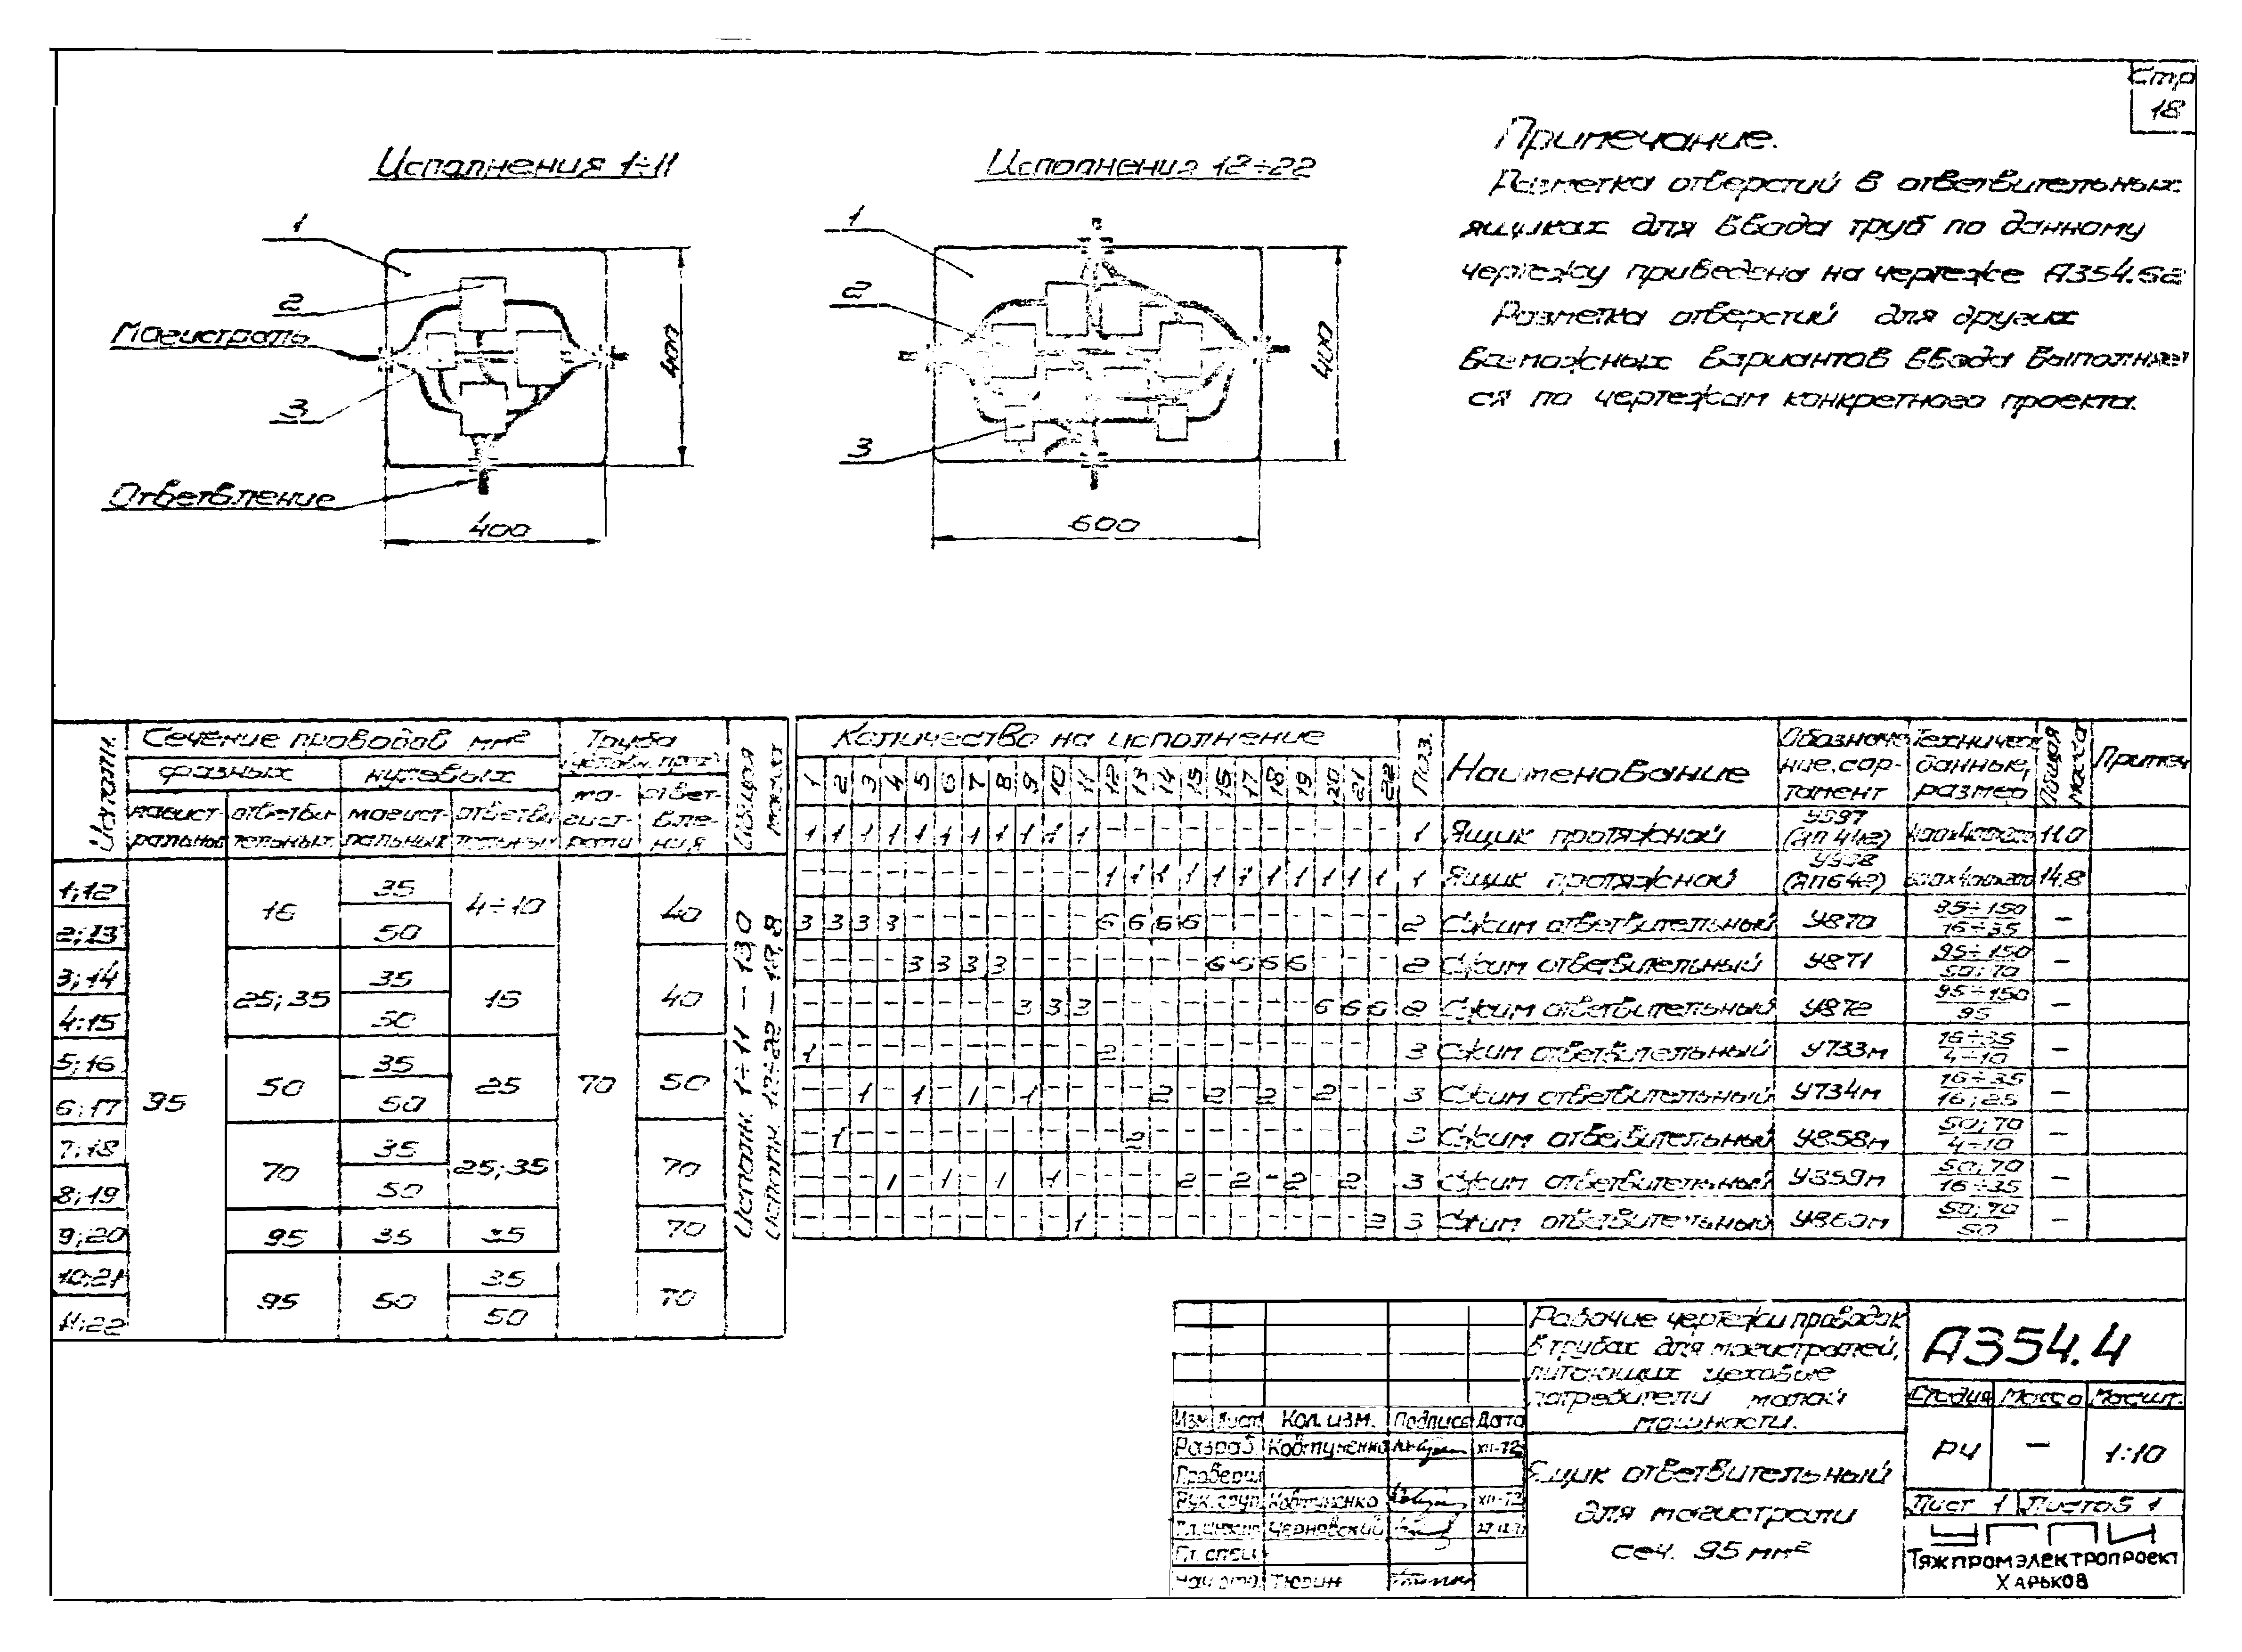 Стр
18
Исполнения 1÷11
Исполнения 12÷22
1
2
Магистраль
3
Ответвление
400
400
1
2
3
400
600
Примечание.
Разметка отверстий в ответвительных
ящиках для ввода труб по данному
чертежу приведена на чертеже А354.62
Разметка отверстий для других
возможных вариантов ввода выполняет
ся по чертежам конкретного проекта.
Исполн. Сечение проводов мм² Труба Общая масса
фазных нулевых
магист- ответви- магист- ответви ма- ответ-
ральных тельных ральных тельных гист- вле-
рали ния
1;12 16 35 4÷10 40
2;13 50
3;14 25;35 35 16 40
4;15 50
5;16 50 35 25 50
6;17 95 50 70
7;18 70 35 25;35 70
8;19 50
9;20 95 35 35 70
10;21 95 50 35 70
11;22 50
Исполн. 1÷11 — 13,0
Исполн. 12÷22 — 18,8
Количество на исполнение Поз. Наименование Обозначе Техническ Общая масса Примеч
ние, сор- данные,
тамент размер
1 2 3 4 5 6 7 8 9 10 11 12 13 14 15 16 17 18 19 20 21 22
1 1 1 1 1 1 1 1 1 1 1 - - - - - - - - - - - 1 Ящик протяжной У997 (ЯП442) 400х400х200 11.0
- - - - - - - - - - - 1 1 1 1 1 1 1 1 1 1 1 1 Ящик протяжной У998 (ЯП642) 600х400х200 14.8
3 3 3 3 - - - - - - - 6 6 6 6 - - - - - - - 2 Сжим ответвительный У870 95÷150 16÷35 —
- - - - 3 3 3 3 - - - - - - - 6 6 6 6 - - - 2 Сжим ответвительный У871 95÷150 50;70 —
- - - - - - - - 3 3 3 - - - - - - - - 6 6 6 2 Сжим ответвительный У872 95÷150 95 —
1 - - - - - - - - - - 2 - - - - - - - - - - 3 Сжим ответвительный У733м 16÷35 4÷10 —
- - 1 - 1 - 1 - 1 - - - - 2 - 2 - 2 - 2 - - 3 Сжим ответвительный У734м 16÷35 16;25 —
- 1 - - - - - - - - - - 2 - - - - - - - - - 3 Сжим ответвительный У858м 50;70 4÷10 —
- - - 1 - 1 - 1 - 1 - - - - 2 - 2 - 2 - 2 - 3 Сжим ответвительный У859м 50;70 16÷35 —
- - - - - - - - - - 1 - - - - - - - - - - 2 3 Сжим ответвительный У860м 50;70 50 —
Рабочие чертежи проводок
в трубах для магистралей,
питающих цеховые
потребители малой
мощности.
А354.4
Стадия Масса Масшт.
РЧ — 1:10
Лист 1 Листов 1
Изм Лист Кол. изм. Подпись Дата
Разраб. Ковтуненко XII-72
Проверил
Рук. груп. Ковтуненко XII-72
Гл. инж. Черновский
Гл. спец
Нач. отд. Тюрин
Ящик ответвительный
для магистрали
сеч. 95 мм²
УГПИ
Тяжпромэлектропроект
Харьков